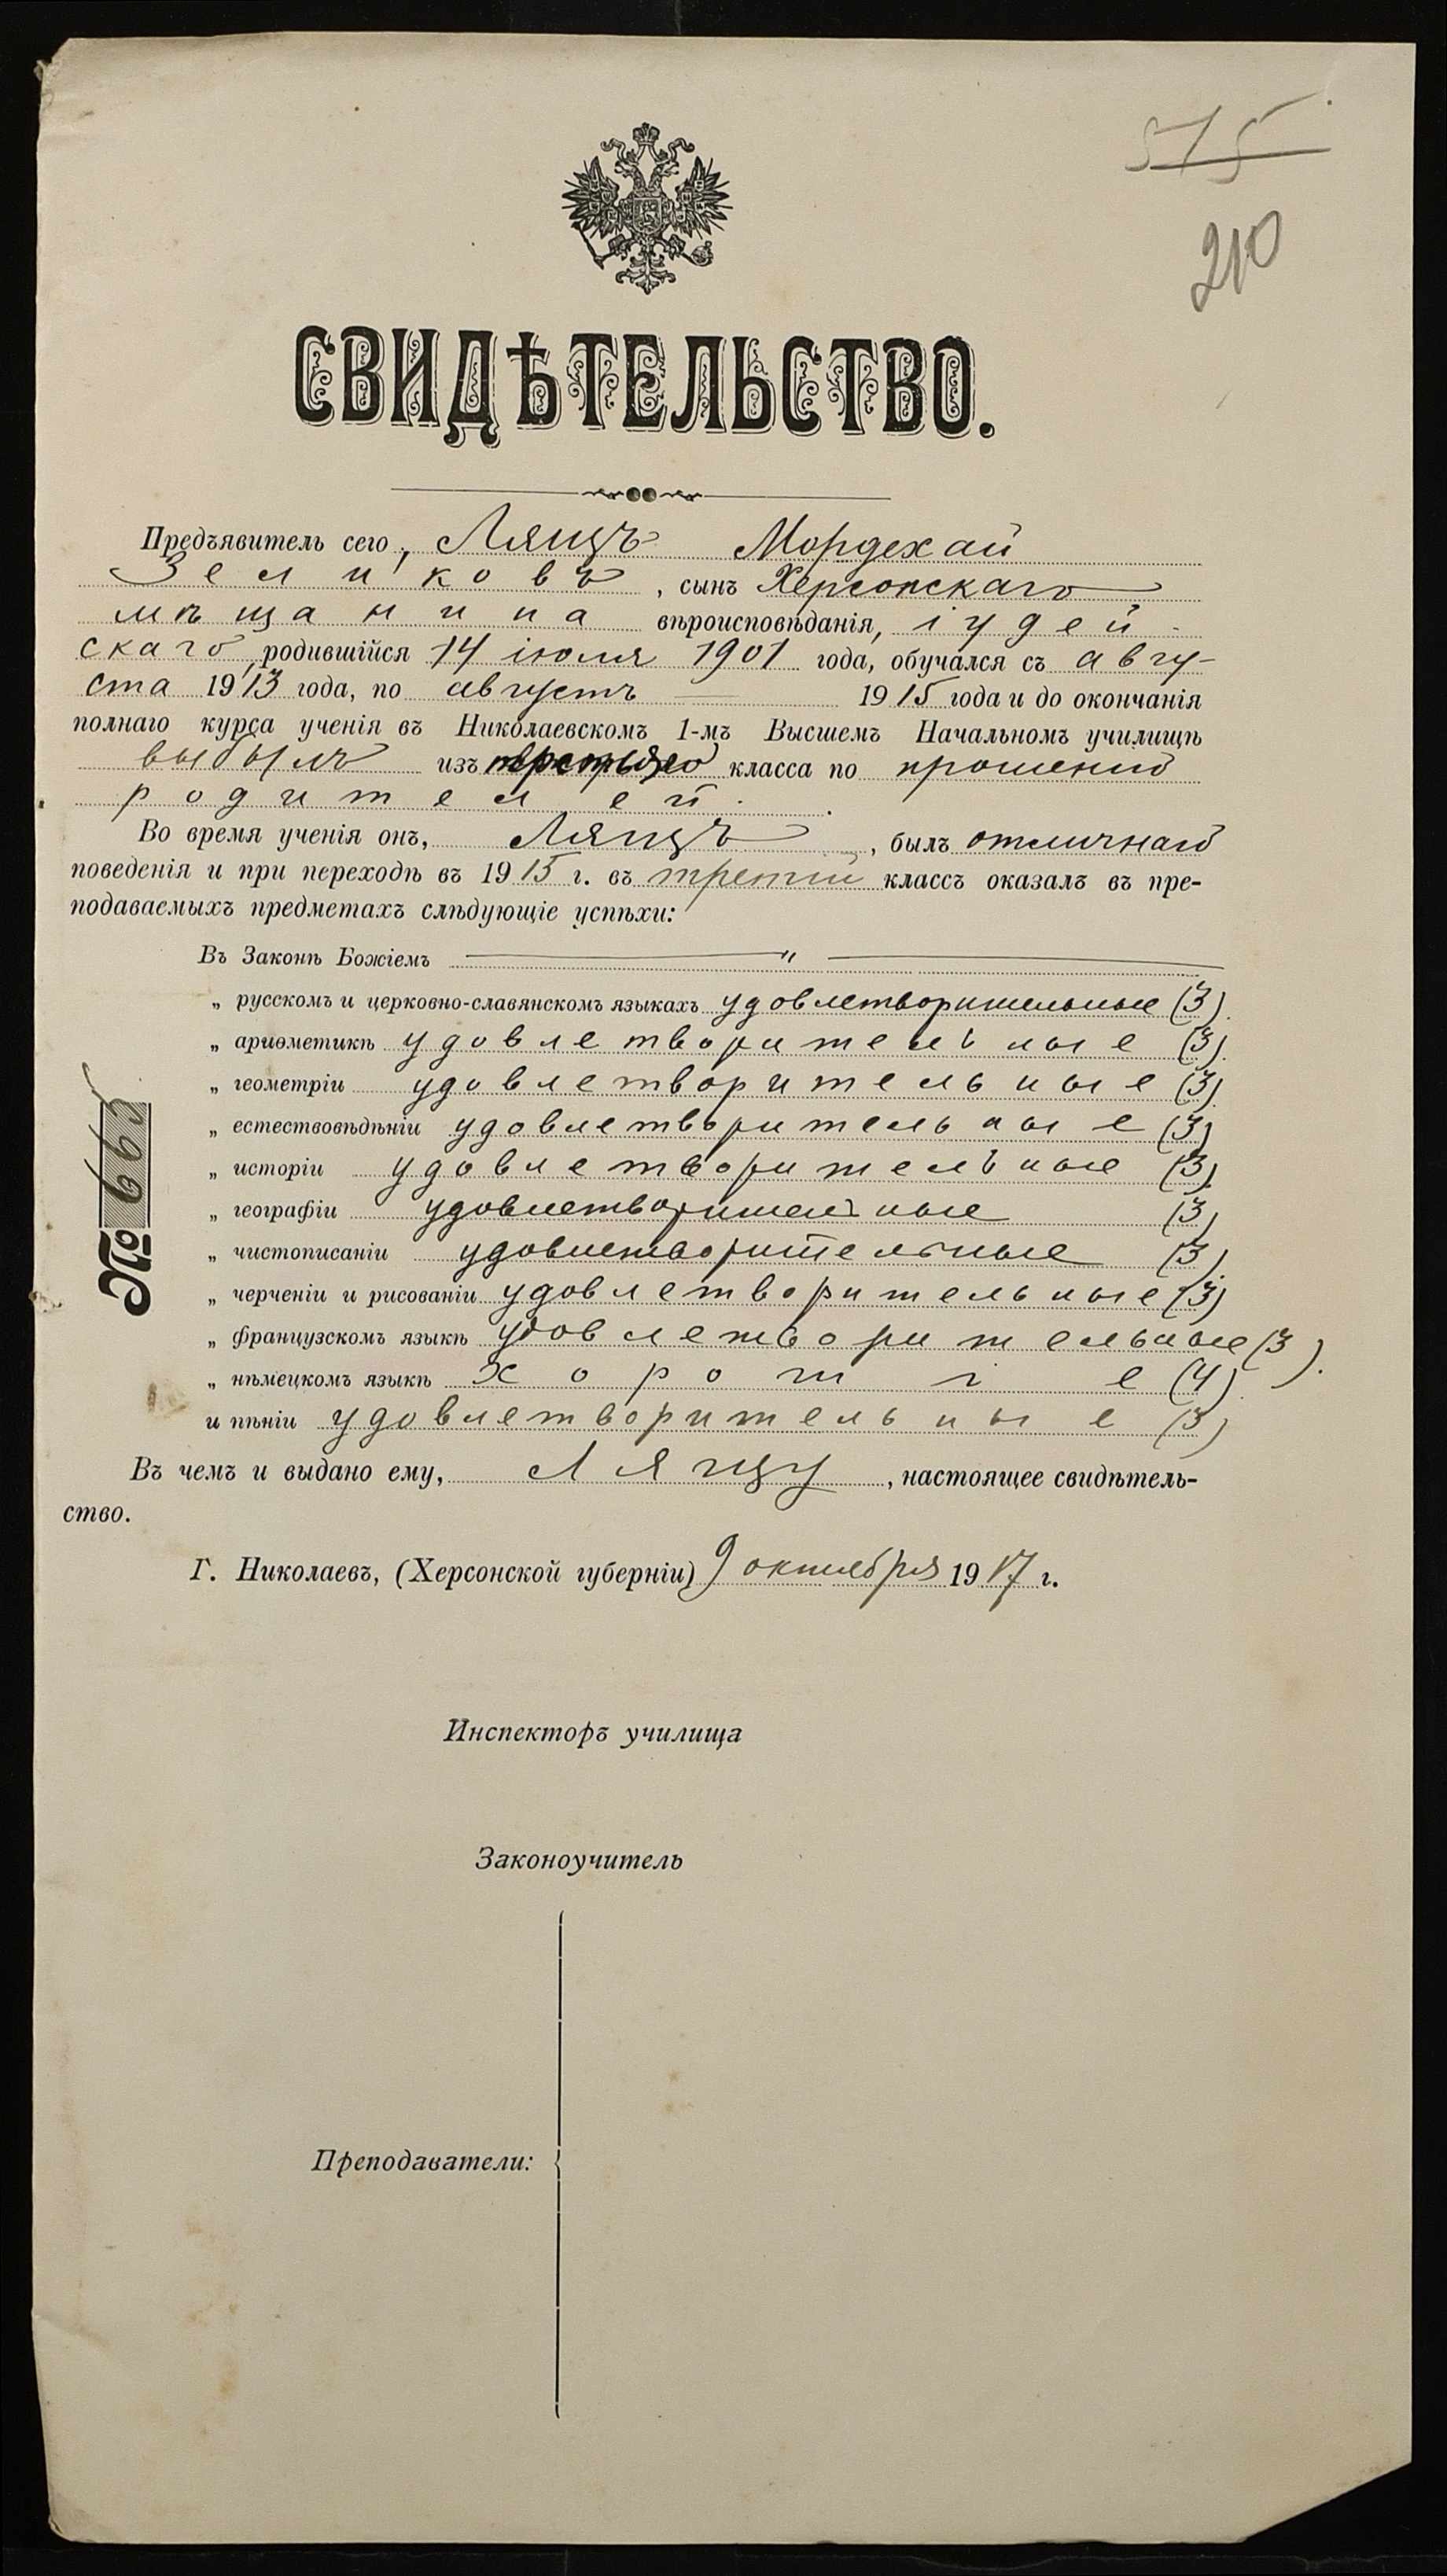 575
210
СВИДѢТЕЛЬСТВО.
Предъявитель сего, Лянцъ Мордехай
Зеликовъ, сынъ Херсонскаго
мѣщанина вѣроисповѣданія, іудей-
скаго родившійся 14 іюля 1901 года, обучался съ авгу-
ста 1913 года, по августъ 1915 года и до окончанія
полнаго курса ученія въ Николаевскомъ 1-мъ Высшемъ Начальномъ училищѣ
выбылъ изъ третьяго класса по прошенію
родителей.
Во время ученія онъ, Лянцъ, былъ отличнаго
поведенія и при переходѣ въ 1915 г. въ третій классъ оказалъ въ пре-
подаваемыхъ предметахъ слѣдующіе успѣхи:
Въ Законѣ Божіемъ — " —
„ русскомъ и церковно-славянскомъ языкахъ удовлетворительные (3).
„ ариѳметикѣ удовлетворительные (3).
„ геометріи удовлетворительные (3).
„ естествовѣдѣніи удовлетворительные (3)
„ исторіи удовлетворительные (3).
„ географіи удовлетворительные (3)
„ чистописаніи удовлетворительные (3)
„ черченіи и рисованіи удовлетворительные (3)
„ французскомъ языкѣ удовлетворительные (3).
„ нѣмецкомъ языкѣ хорошіе (4).
и пѣніи удовлетворительные (3)
Въ чемъ и выдано ему, Лянцу, настоящее свидѣтель-
ство.
Г. Николаевъ, (Херсонской губерніи) 9 октября 1917 г.
№ 667
Инспекторъ училища
Законоучитель
Преподаватели: